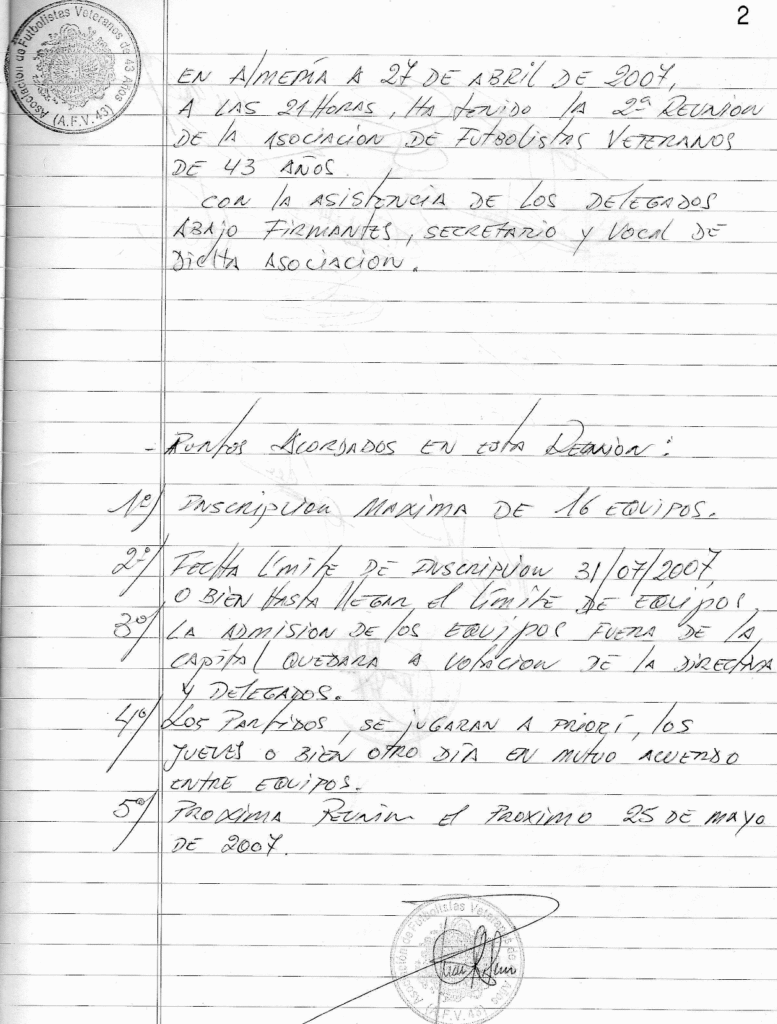 2
Asociación de Futbolistas Veteranos de 43 Años
(A.F.V. 43)
EN AlMERÍA A 27 DE ABRIL DE 2007,
A LAS 21 HORAS, HA TENIDO LA 2ª REUNION
DE LA ASOCIACION DE FUTBOLISTAS VETERANOS
DE 43 AÑOS.
CON LA ASISTENCIA DE LOS DELEGADOS
ABAJO FIRMANTES, SECRETARIO y VOCAL DE
DICHA ASOCIACION.
- PUNTOS ACORDADOS EN ESTA REUNION:
1º/ INSCRIPCION MAXIMA DE 16 EQUIPOS.
2º/ FECHA LÍMITE DE INSCRIPCION 31/07/2007,
O BIEN HASTA LLEGAR EL LÍMITE DE EQUIPOS,
3º/ LA ADMISION DE LOS EQUIPOS FUERA DE LA
CAPITAL QUEDARA A VOTACION DE LA DIRECTIVA
Y DELEGADOS.
4º/ LOS PARTIDOS, SE JUGARAN A PRIORÍ, LOS
JUEVES O BIEN OTRO DÍA EN MUTUO ACUERDO
ENTRE EQUIPOS.
5º/ PROXIMA REUNION EL PROXIMO 25 DE MAYO
DE 2007.
Asociación de Futbolistas Veteranos de 43 Años
(A.F.V. 43)